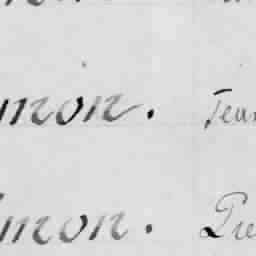 mon. Jean
mon. Pie